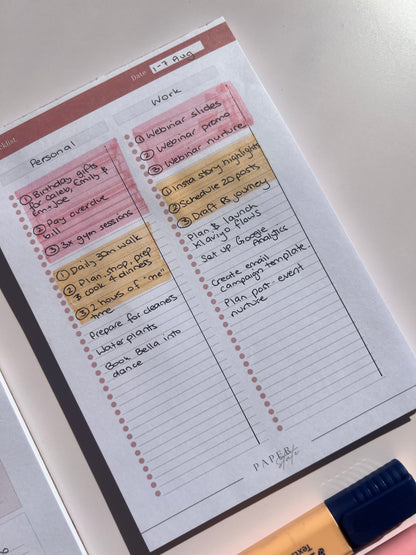 cklist
Date 1-7 Aug
Personal
① Birthday gifts
for Caleb, Emily &
Em+Joe
② Pay overdue
bill
③ 3x gym sessions
① Daily 30m walk
② Plan, shop, prep
& cook 4 dinners
③ 2 hours of "me"
time
Prepare for cleaners
Water plants
Book Bella into
dance
Work
① Webinar slides
② Webinar promo
③ Webinar nurture
① Insta story highlights
② Schedule 20 posts
③ Draft journey
Plan & launch
Klaviyo flows
Set up Google
Analytics
Create email
campaign template
Plan post-event
nurture
PAPER
Text